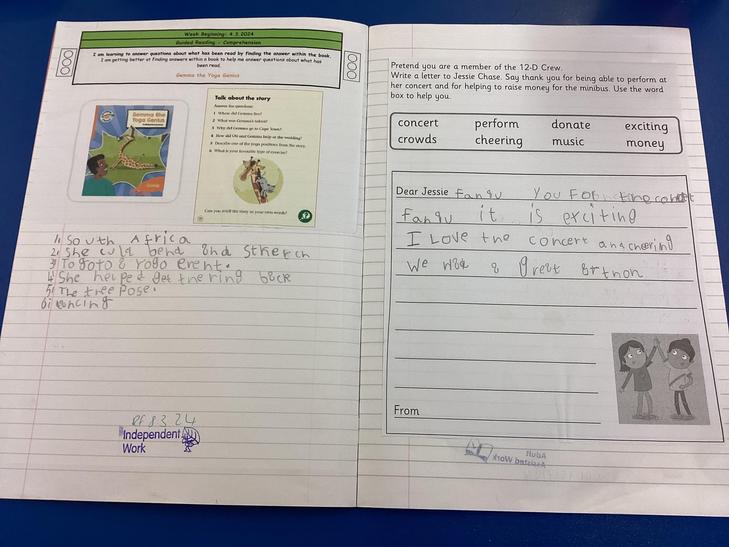 Week Beginning: 4.3.2024
Guided Reading - Comprehension
I am learning to answer questions about what has been read by finding the answer within the book.
I am getting better at finding answers within a book to help me answer questions about what has
been read.
Gemma the Yoga Genius
Gemma the
Yoga Genius
Talk about the story
Answer the questions:
1 Where did Gemma live?
2 What was Gemma's talent?
3 Why did Gemma go to Cape Town?
4 How did Obi and Gemma help at the wedding?
5 Describe one of the yoga positions from the story.
6 What is your favourite type of exercise?
Can you retell the story in your own words?
1. South Africa
2. She culd bend and stretch
3. To goto a yogo event.
4. She helped get the ring back
5. The tree Pose.
6.
RF 8 3 24
Independent
Work
Pretend you are a member of the 12-D Crew.
Write a letter to Jessie Chase. Say thank you for being able to perform at
her concert and for helping to raise money for the minibus. Use the word
box to help you.
concert perform donate exciting
crowds cheering music money
Dear Jessie fanqu You For the
fanqu it is exciting
I Love the concert
We a great
From
Adult
Assisted Work